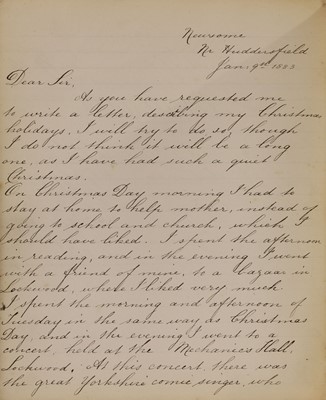 Newsome
Nr Huddersfield
Jan. 9th 1883
Dear Sir,
As you have requested me
to write a letter, describing my Christmas
holidays, I will try to do so, though
I do not think it will be a long
one, as I have had such a quiet
Christmas.
On Christmas Day morning I had to
stay at home to help mother, instead of
going to school and church, which I
should have liked. I spent the afternoon
in reading, and in the evening I went
with a friend of mine, to a bazaar in
Lockwood, where I liked very much.
I spent the morning and afternoon of
Tuesday in the same way as Christmas
Day, and in the evening I went to a
concert, held at the Mechanics Hall,
Lockwood. At this concert, there was
the great Yorkshire comic singer, who